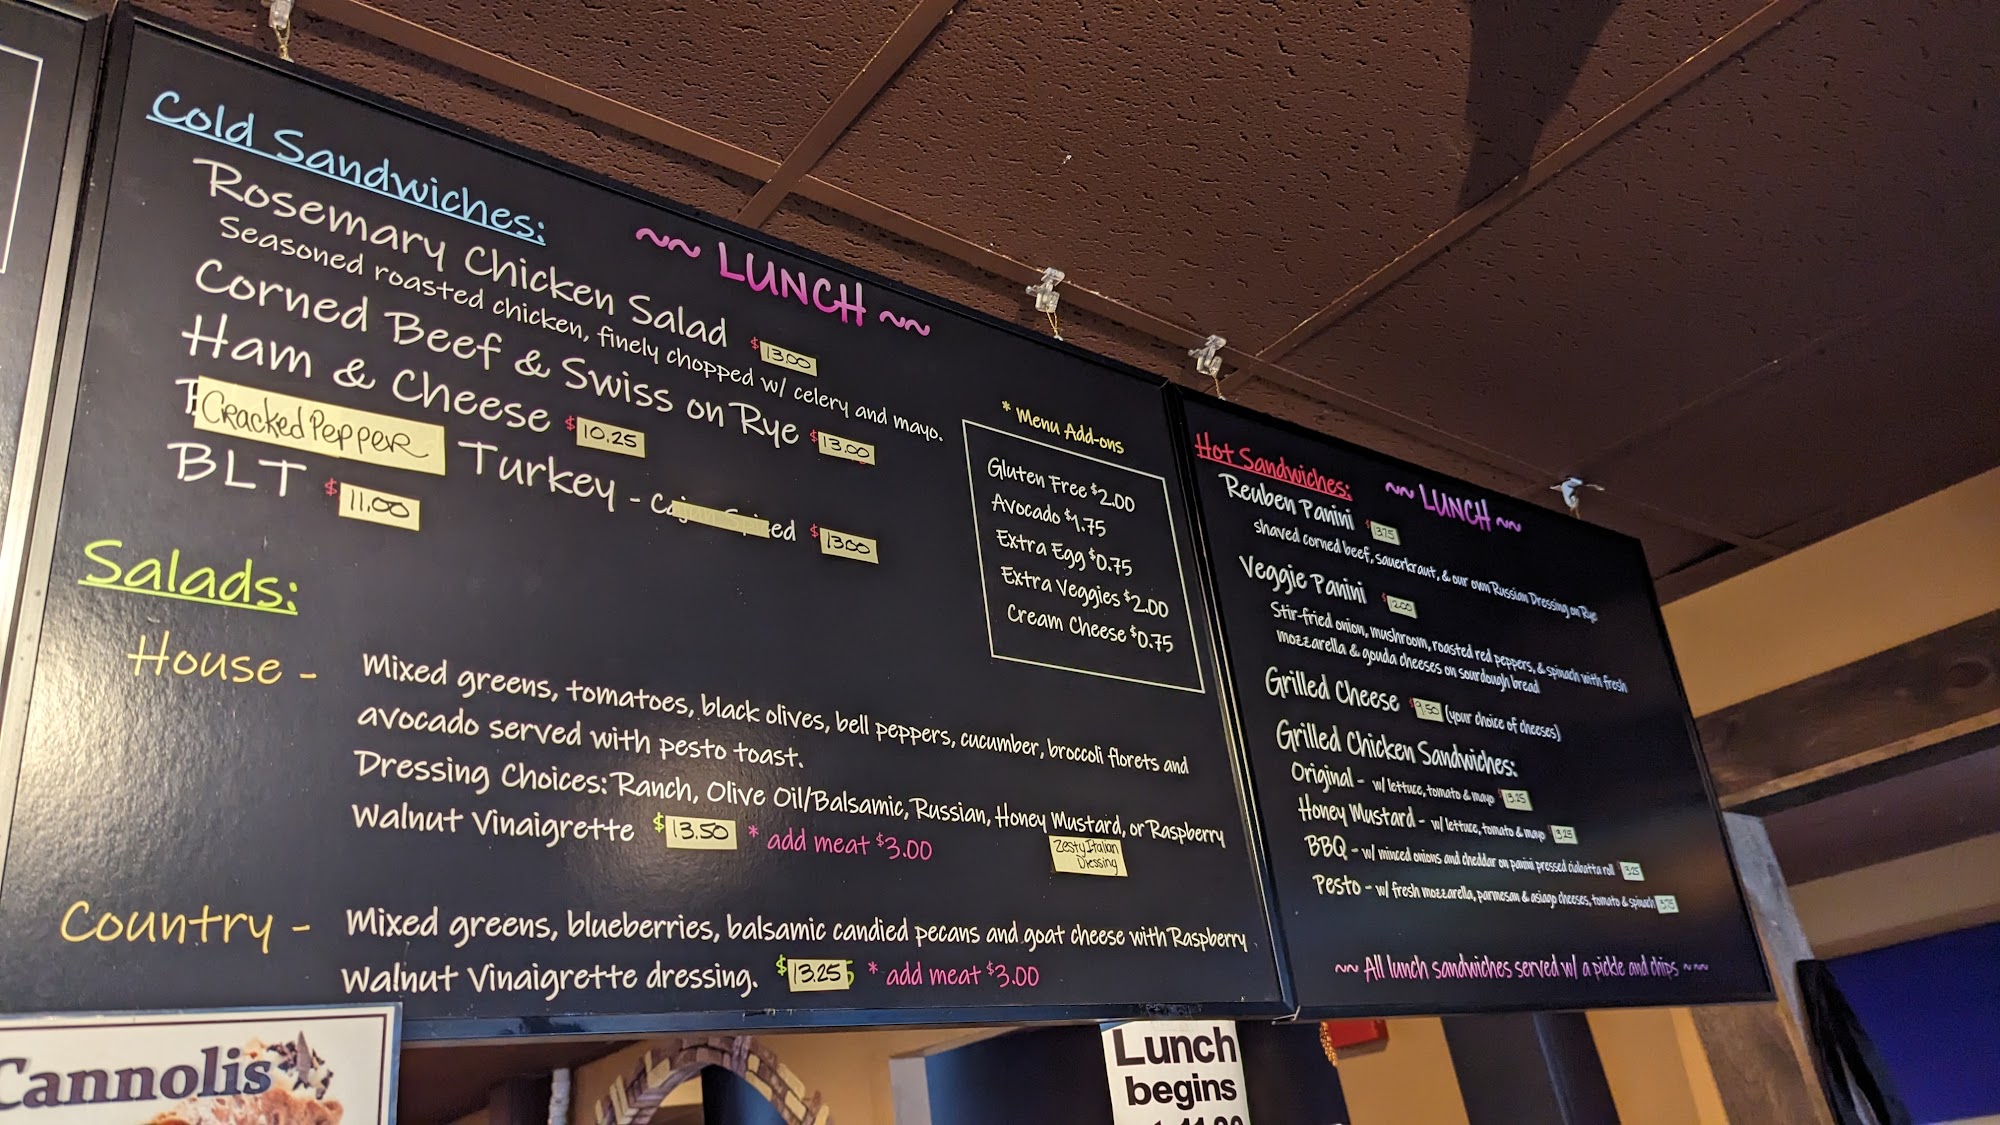 Cold Sandwiches:
~~ LUNCH ~~
Rosemary Chicken Salad $13.00
Seasoned roasted chicken, finely chopped w/ celery and mayo.
Corned Beef & Swiss on Rye $13.00
Ham & Cheese $10.25
Cracked Pepper Turkey - Cajun Spiced $13.00
BLT $11.00
* Menu Add-ons
Gluten Free $2.00
Avocado $1.75
Extra Egg $0.75
Extra Veggies $2.00
Cream Cheese $0.75
Salads:
House - Mixed greens, tomatoes, black olives, bell peppers, cucumber, broccoli florets and
avocado served with pesto toast.
Dressing Choices: Ranch, Olive Oil/Balsamic, Russian, Honey Mustard, or Raspberry
Walnut Vinaigrette $13.50 * add meat $3.00
Zesty Italian
Dressing
Country - Mixed greens, blueberries, balsamic candied pecans and goat cheese with Raspberry
Walnut Vinaigrette dressing. $13.25 * add meat $3.00
Hot Sandwiches:
~~ LUNCH ~~
Reuben Panini $13.75
shaved corned beef, sauerkraut, & our own Russian Dressing on Rye
Veggie Panini $12.00
Stir-fried onion, mushroom, roasted red peppers, & spinach with fresh
mozzarella & gouda cheeses on sourdough bread
Grilled Cheese $9.50 (your choice of cheeses)
Grilled Chicken Sandwiches:
Original - w/ lettuce, tomato & mayo 13.25
Honey Mustard - w/ lettuce, tomato & mayo
BBQ - w/ minced onions and cheddar on panini pressed ciabatta roll
Pesto - w/ fresh mozzarella, parmesan & asiago cheeses, tomato & spinach
~~ All lunch sandwiches served w/ a pickle and chips ~~
Cannolis
Lunch
begins